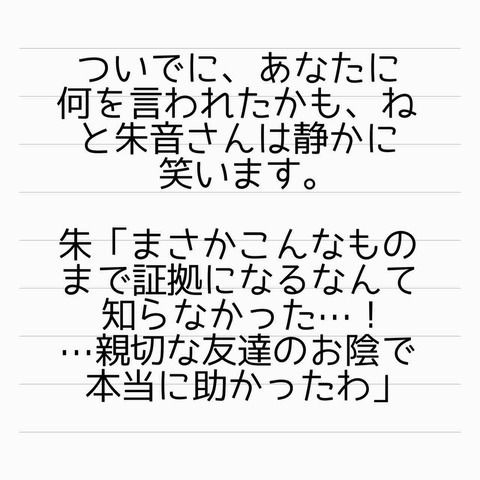 ついでに、あなたに
何を言われたかも、ね
と朱音さんは静かに
笑います。
朱「まさかこんなもの
まで証拠になるなんて
知らなかった…！
…親切な友達のお陰で
本当に助かったわ」